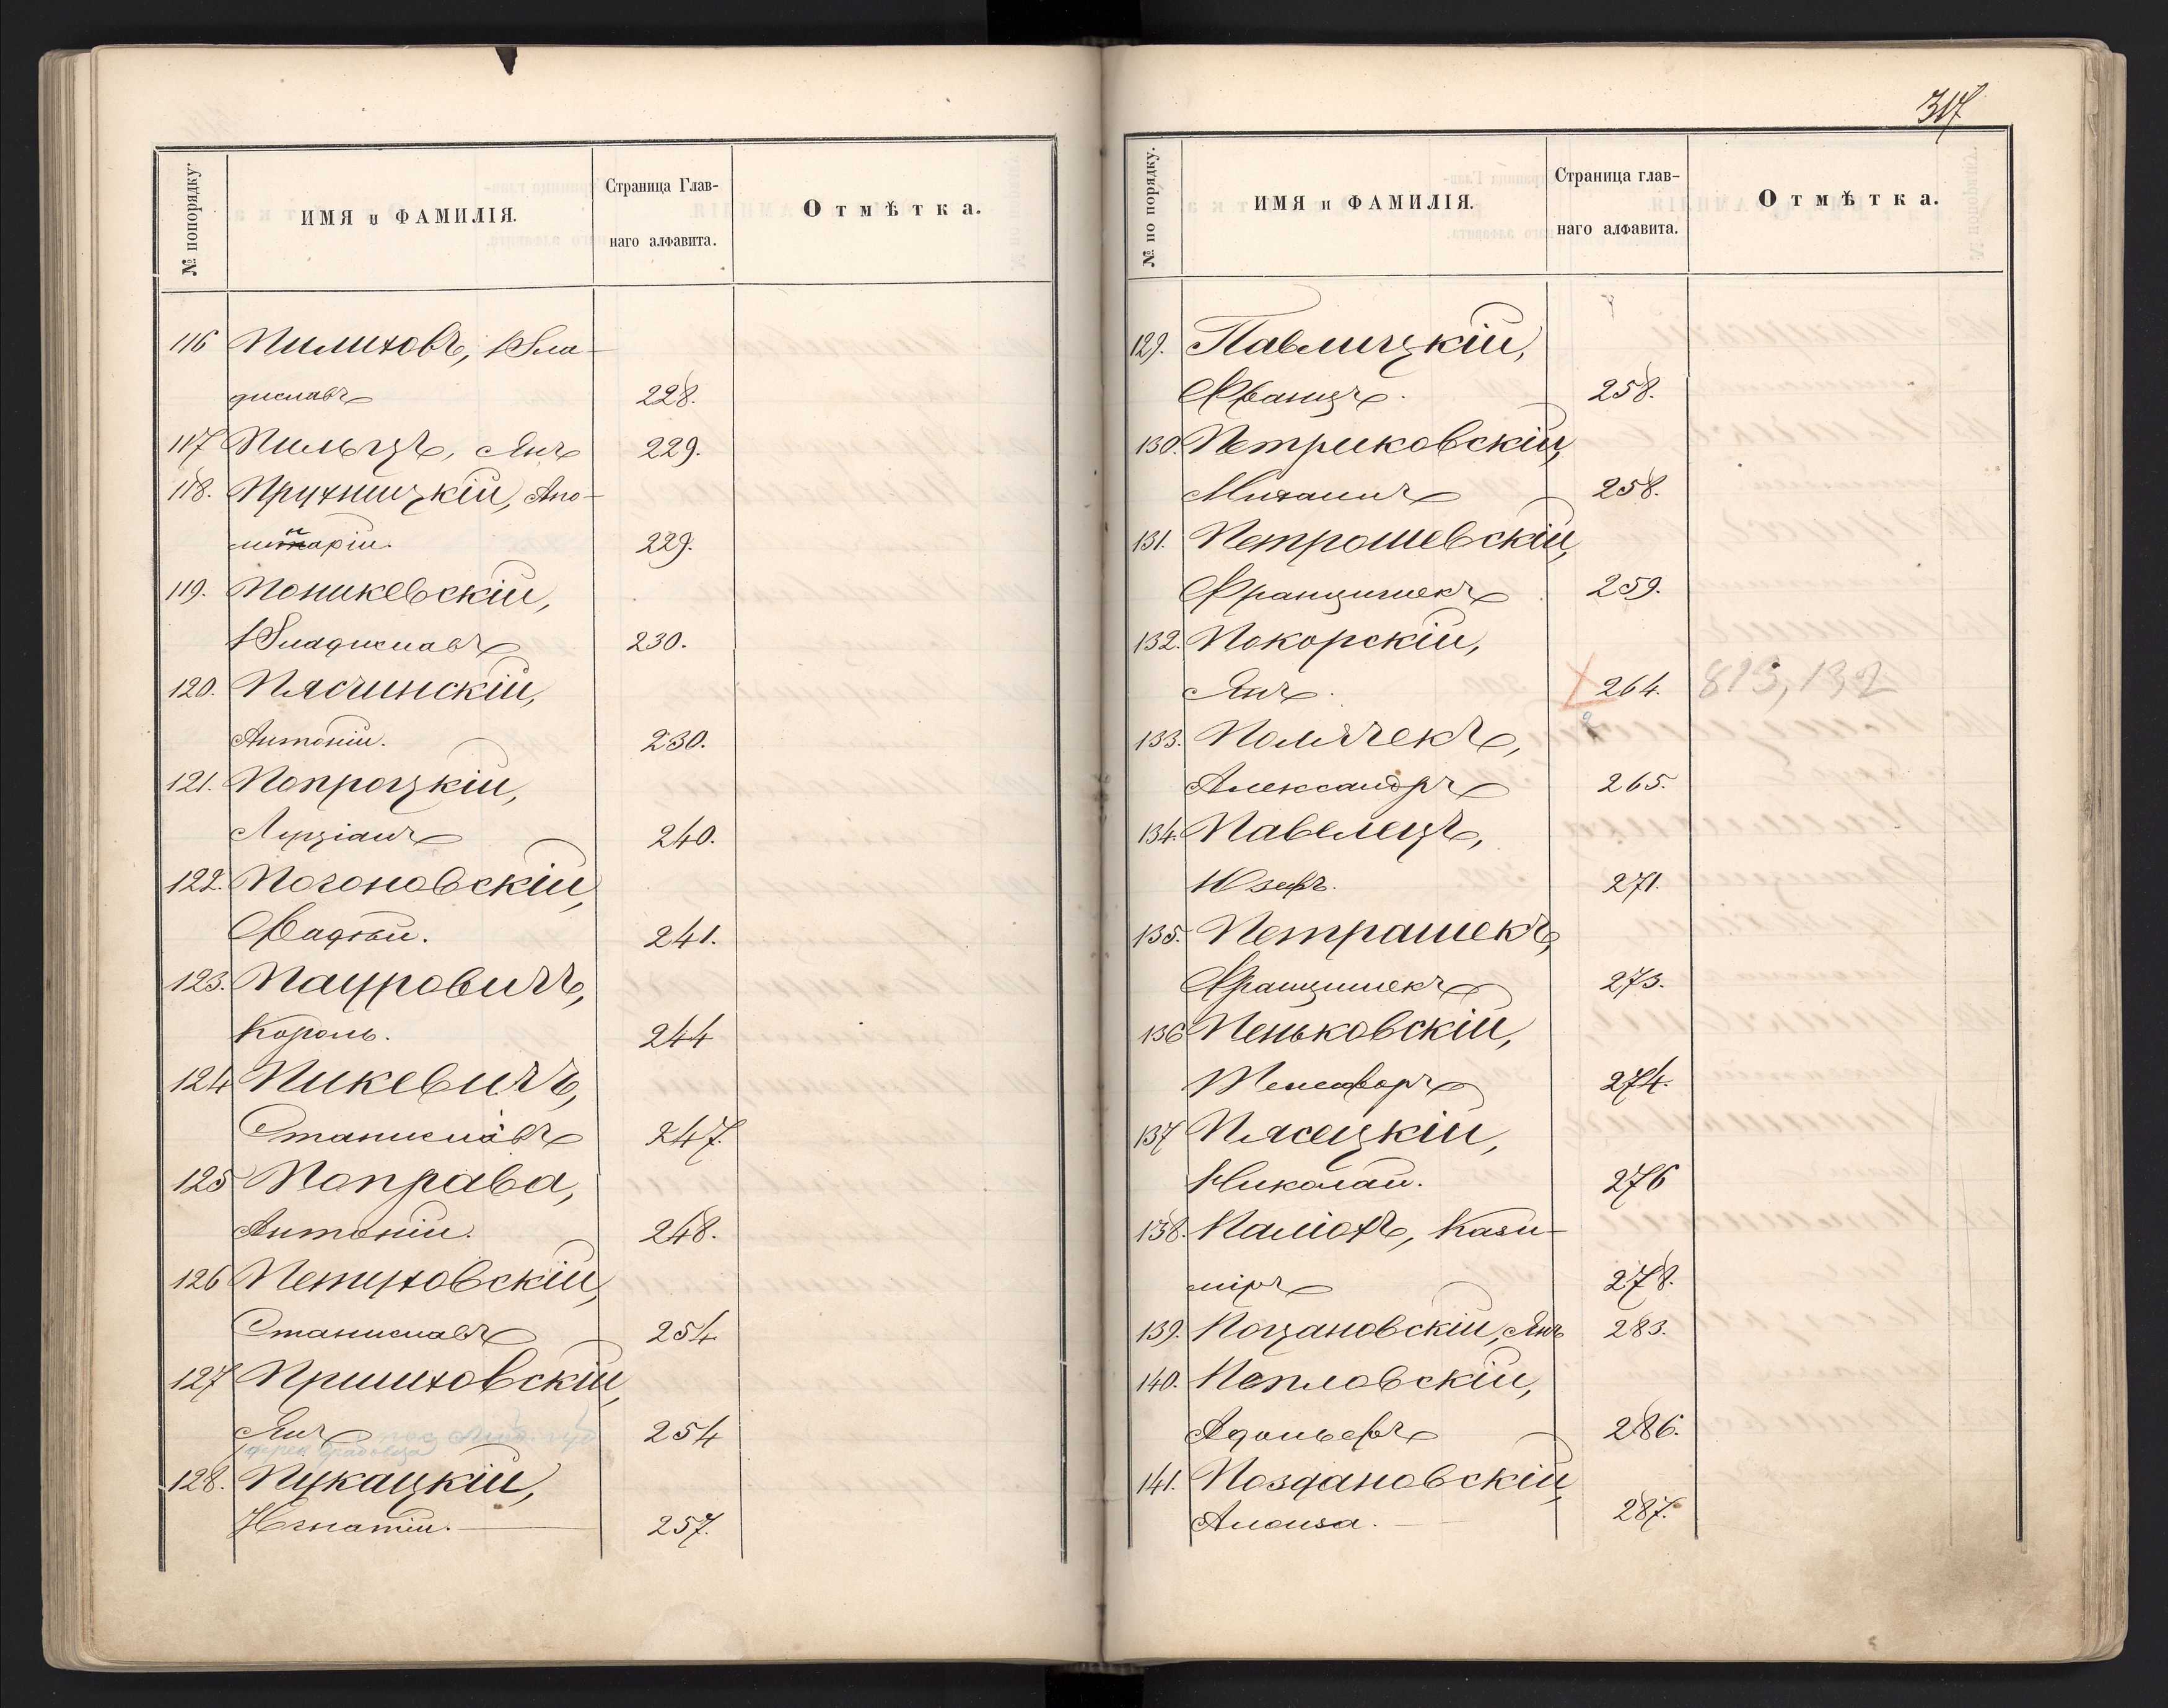 № попорядку.
ИМЯ и ФАМИЛІЯ.
Страница Глав-
наго алфавита.
Отмѣтка.
116 Пилиховъ, Вла-
диславъ 228.
117 Пильцъ, Янъ 229.
118. Прухницкій, Апо-
229.
119. Поникевскій,
Владиславъ 230.
120. Плясчинскій,
Антоній. 230.
121. Папроцкій,
Луціанъ 240.
122. Погоновскій,
Фадѣй. 241.
123. Пауровичъ,
Кароль. 244
124 Пикевичъ,
Станиславъ 247.
125 Поправа,
Антоній. 248.
126 Петуховскій,
Станиславъ 254
127 Пришиховскій,
Янъ 254
128. Пукацкій,
Игнатій. 257.
317
№ по порядку.
ИМЯ и ФАМИЛІЯ.
Страница глав-
наго алфавита.
Отмѣтка.
129. Павлицкій,
Францъ. 258.
130. Петриковскій,
Михаилъ 258.
131. Петрошевскій,
Францишекъ 259.
132. Покорскій,
Янъ. 264. 813, 132
133. Полячекъ,
Александръ 265.
134. Павелецъ,
Юзефъ. 271.
135. Петрашекъ,
Францишекъ 273.
136 Пеньковскій,
274.
137 Плясецкій,
Николай. 276
138. Паліохъ, Кази-
міръ 278.
139. Поцановскій, Янъ 283.
140. Пепловскій,
Адольефъ 286.
141. Поздановскій,
Алоиза. 287.